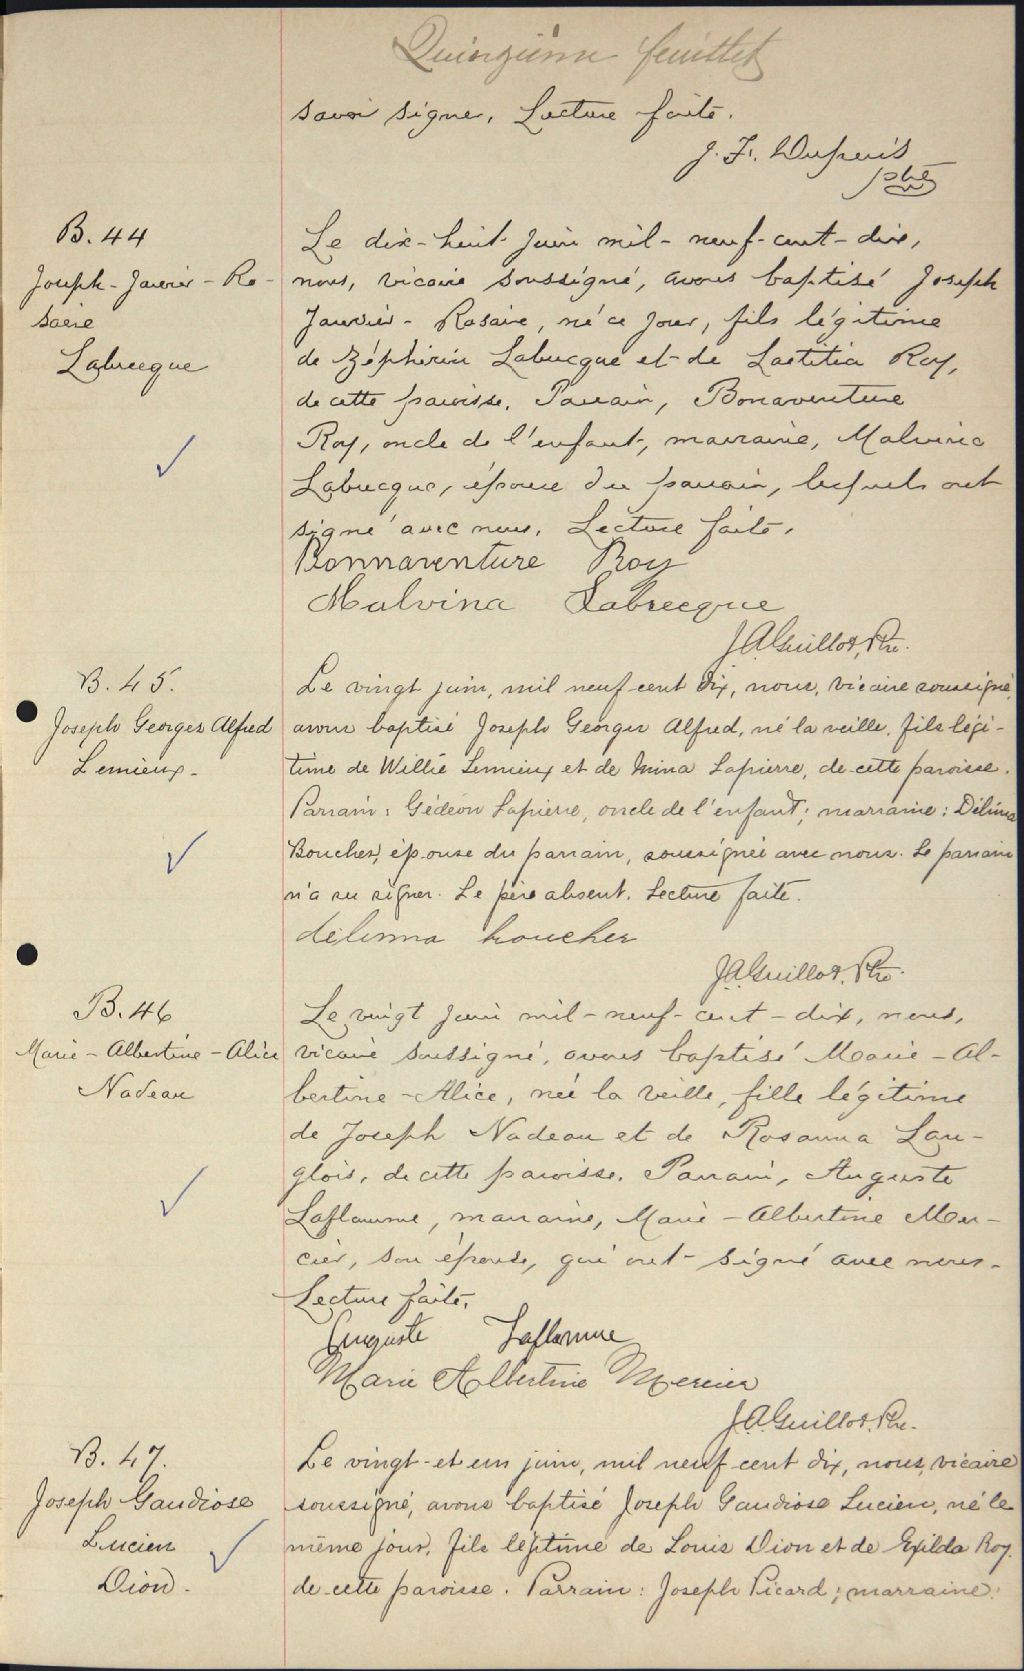 Quinzième feuillet
savoir signer. Lecture faite.
J. F. Dupuis
ptre
B. 44
Joseph-Janvier-Ro-
saire
Labrecque
Le dix-huit juin mil-neuf-cent-dix,
nous, vicaire soussigné, avons baptisé Joseph
Janvier-Rosaire, né ce jour, fils légitime
de Zéphirin Labrecque et de Laetitia Roy,
de cette paroisse. Parrain, Bonaventure
Roy, oncle de l'enfant, marraine, Malvina
Labrecque, épouse du parrain, lesquels ont
signé avec nous. Lecture faite.
Bonnaventure Roy
Malvina Labrecque
J.A. Guillot, Ptre.
B. 45.
Joseph Georges Alfred
Lemieux.
Le vingt juin, mil neuf cent dix, nous, vicaire soussigné,
avons baptisé Joseph Georges Alfred, né la veille, fils légi-
time de Willie Lemieux et de Mina Lapierre, de cette paroisse.
Parrain: Gédéon Lapierre, oncle de l'enfant; marraine: Délima
Boucher, épouse du parrain, soussignée avec nous. Le parrain
n'a su signer. Le père absent. Lecture faite.
delimma boucher
J.A. Guillot, Ptre.
B. 46
Marie-Albertine-Alice
Nadeau
Le vingt juin mil-neuf-cent-dix, nous,
vicaire soussigné, avons baptisé Marie-Al-
bertine-Alice, née la veille, fille légitime
de Joseph Nadeau et de Rosanna Lan-
glois, de cette paroisse. Parrain, Auguste
Laflamme, marraine, Marie-Albertine Mer-
cier, son épouse, qui ont signé avec nous.
Lecture faite.
Auguste Laflamme
Marie Albertine Mercier
J.A. Guillot, Ptre.
B. 47.
Joseph Gaudiose
Lucien
Dion.
Le vingt-et-un juin, mil neuf cent dix, nous, vicaire
soussigné, avons baptisé Joseph Gaudiose Lucien, né le
même jour, fils légitime de Louis Dion et de Exilda Roy.
de cette paroisse. Parrain: Joseph Picard; marraine: